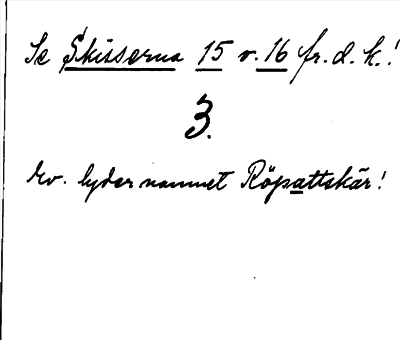 Se Skisserna 15 v. 16 fr. d. k.!
3.
Ev. lyder namnet Röpattskär!